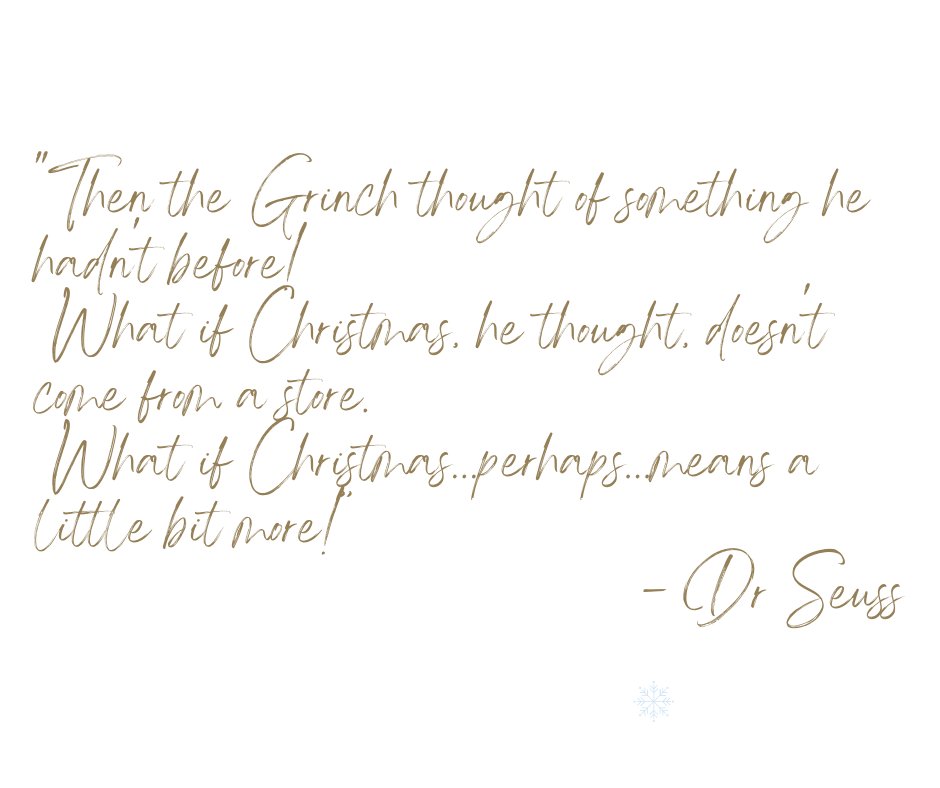 "Then the Grinch thought of something he
hadn't before!
What if Christmas, he thought, doesn't
come from a store.
What if Christmas...perhaps...means a
little bit more!"
- Dr Seuss